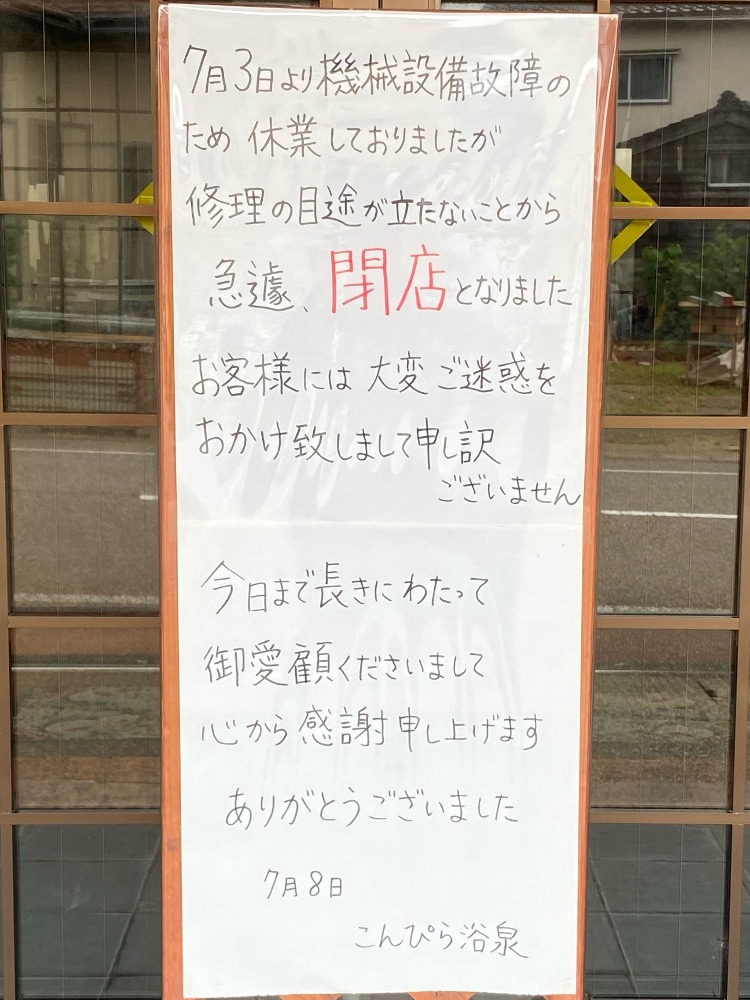 7月3日より機械設備故障の
ため 休業しておりましたが
修理の目途が立たないことから
急遽、閉店となりました
お客様には 大変ご迷惑を
おかけ致しまして申し訳
ございません
今日まで長きにわたって
御愛顧くださいまして
心から感謝申し上げます
ありがとうございました
7月8日
こんぴら浴泉